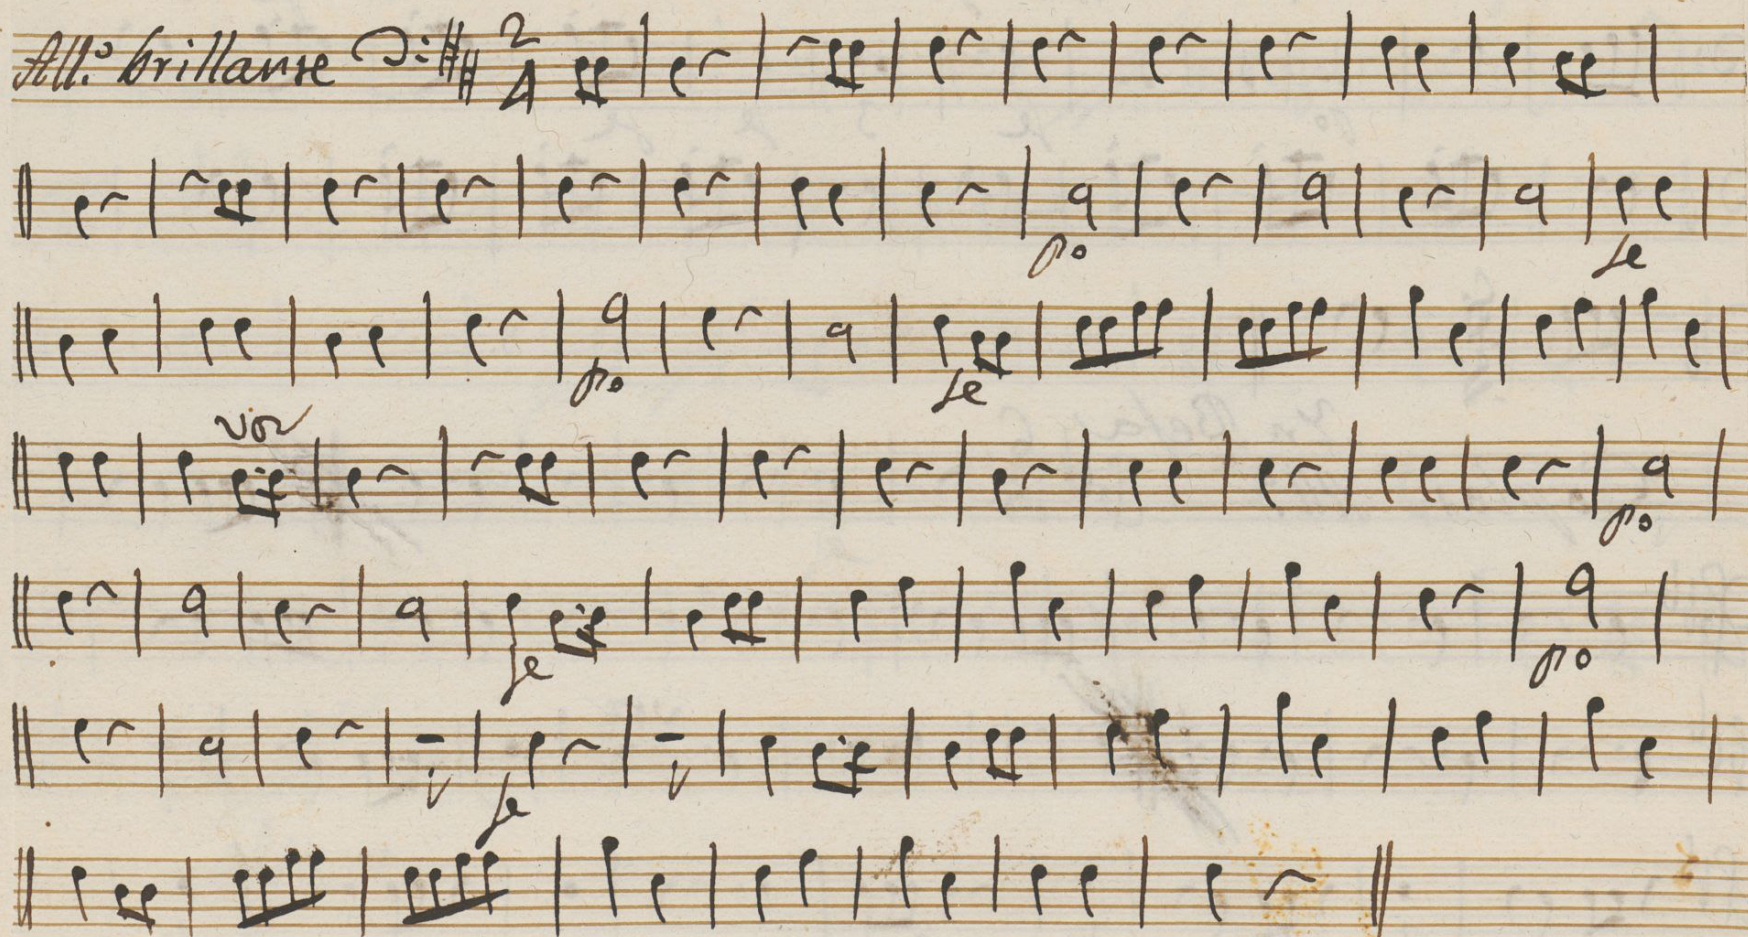 All.º brillante 2/4
po fe
po fe
vor po
fe po
fe